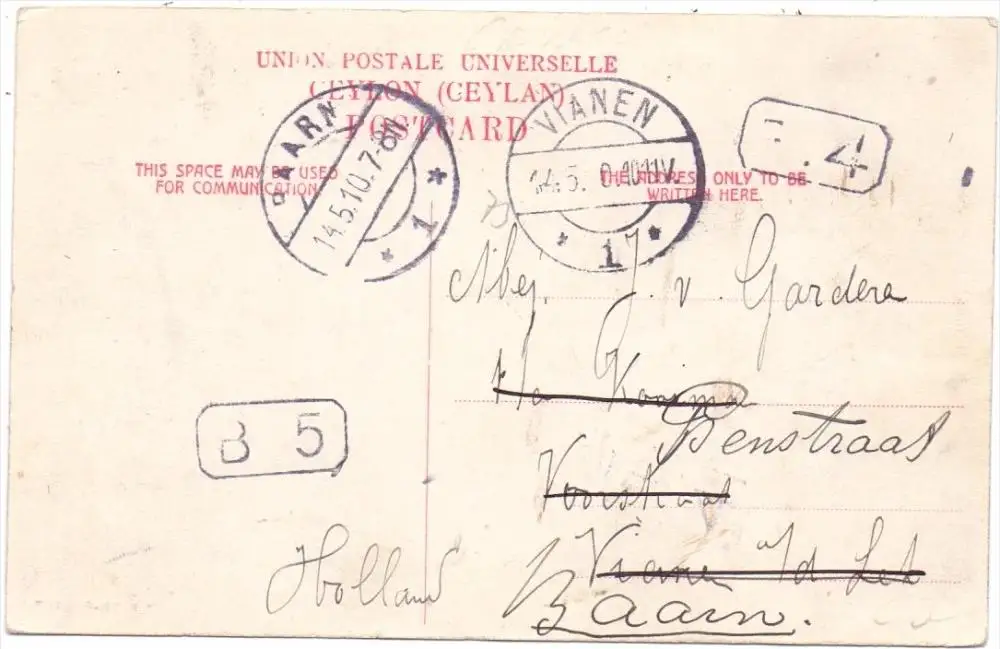 UNION POSTALE UNIVERSELLE
CEYLON (CEYLAN)
POSTCARD
BAARN
14.5.10.7-8N
1
VIANEN
14.5. 0.1011V
1
. 4
THIS SPACE MAY BE USED
FOR COMMUNICATION.
THE ADDRESS ONLY TO BE
WRITTEN HERE.
Mej. J. v. Garderen
Voorstraat
Vianen a/d Lek
Baarn.
B 5
Holland